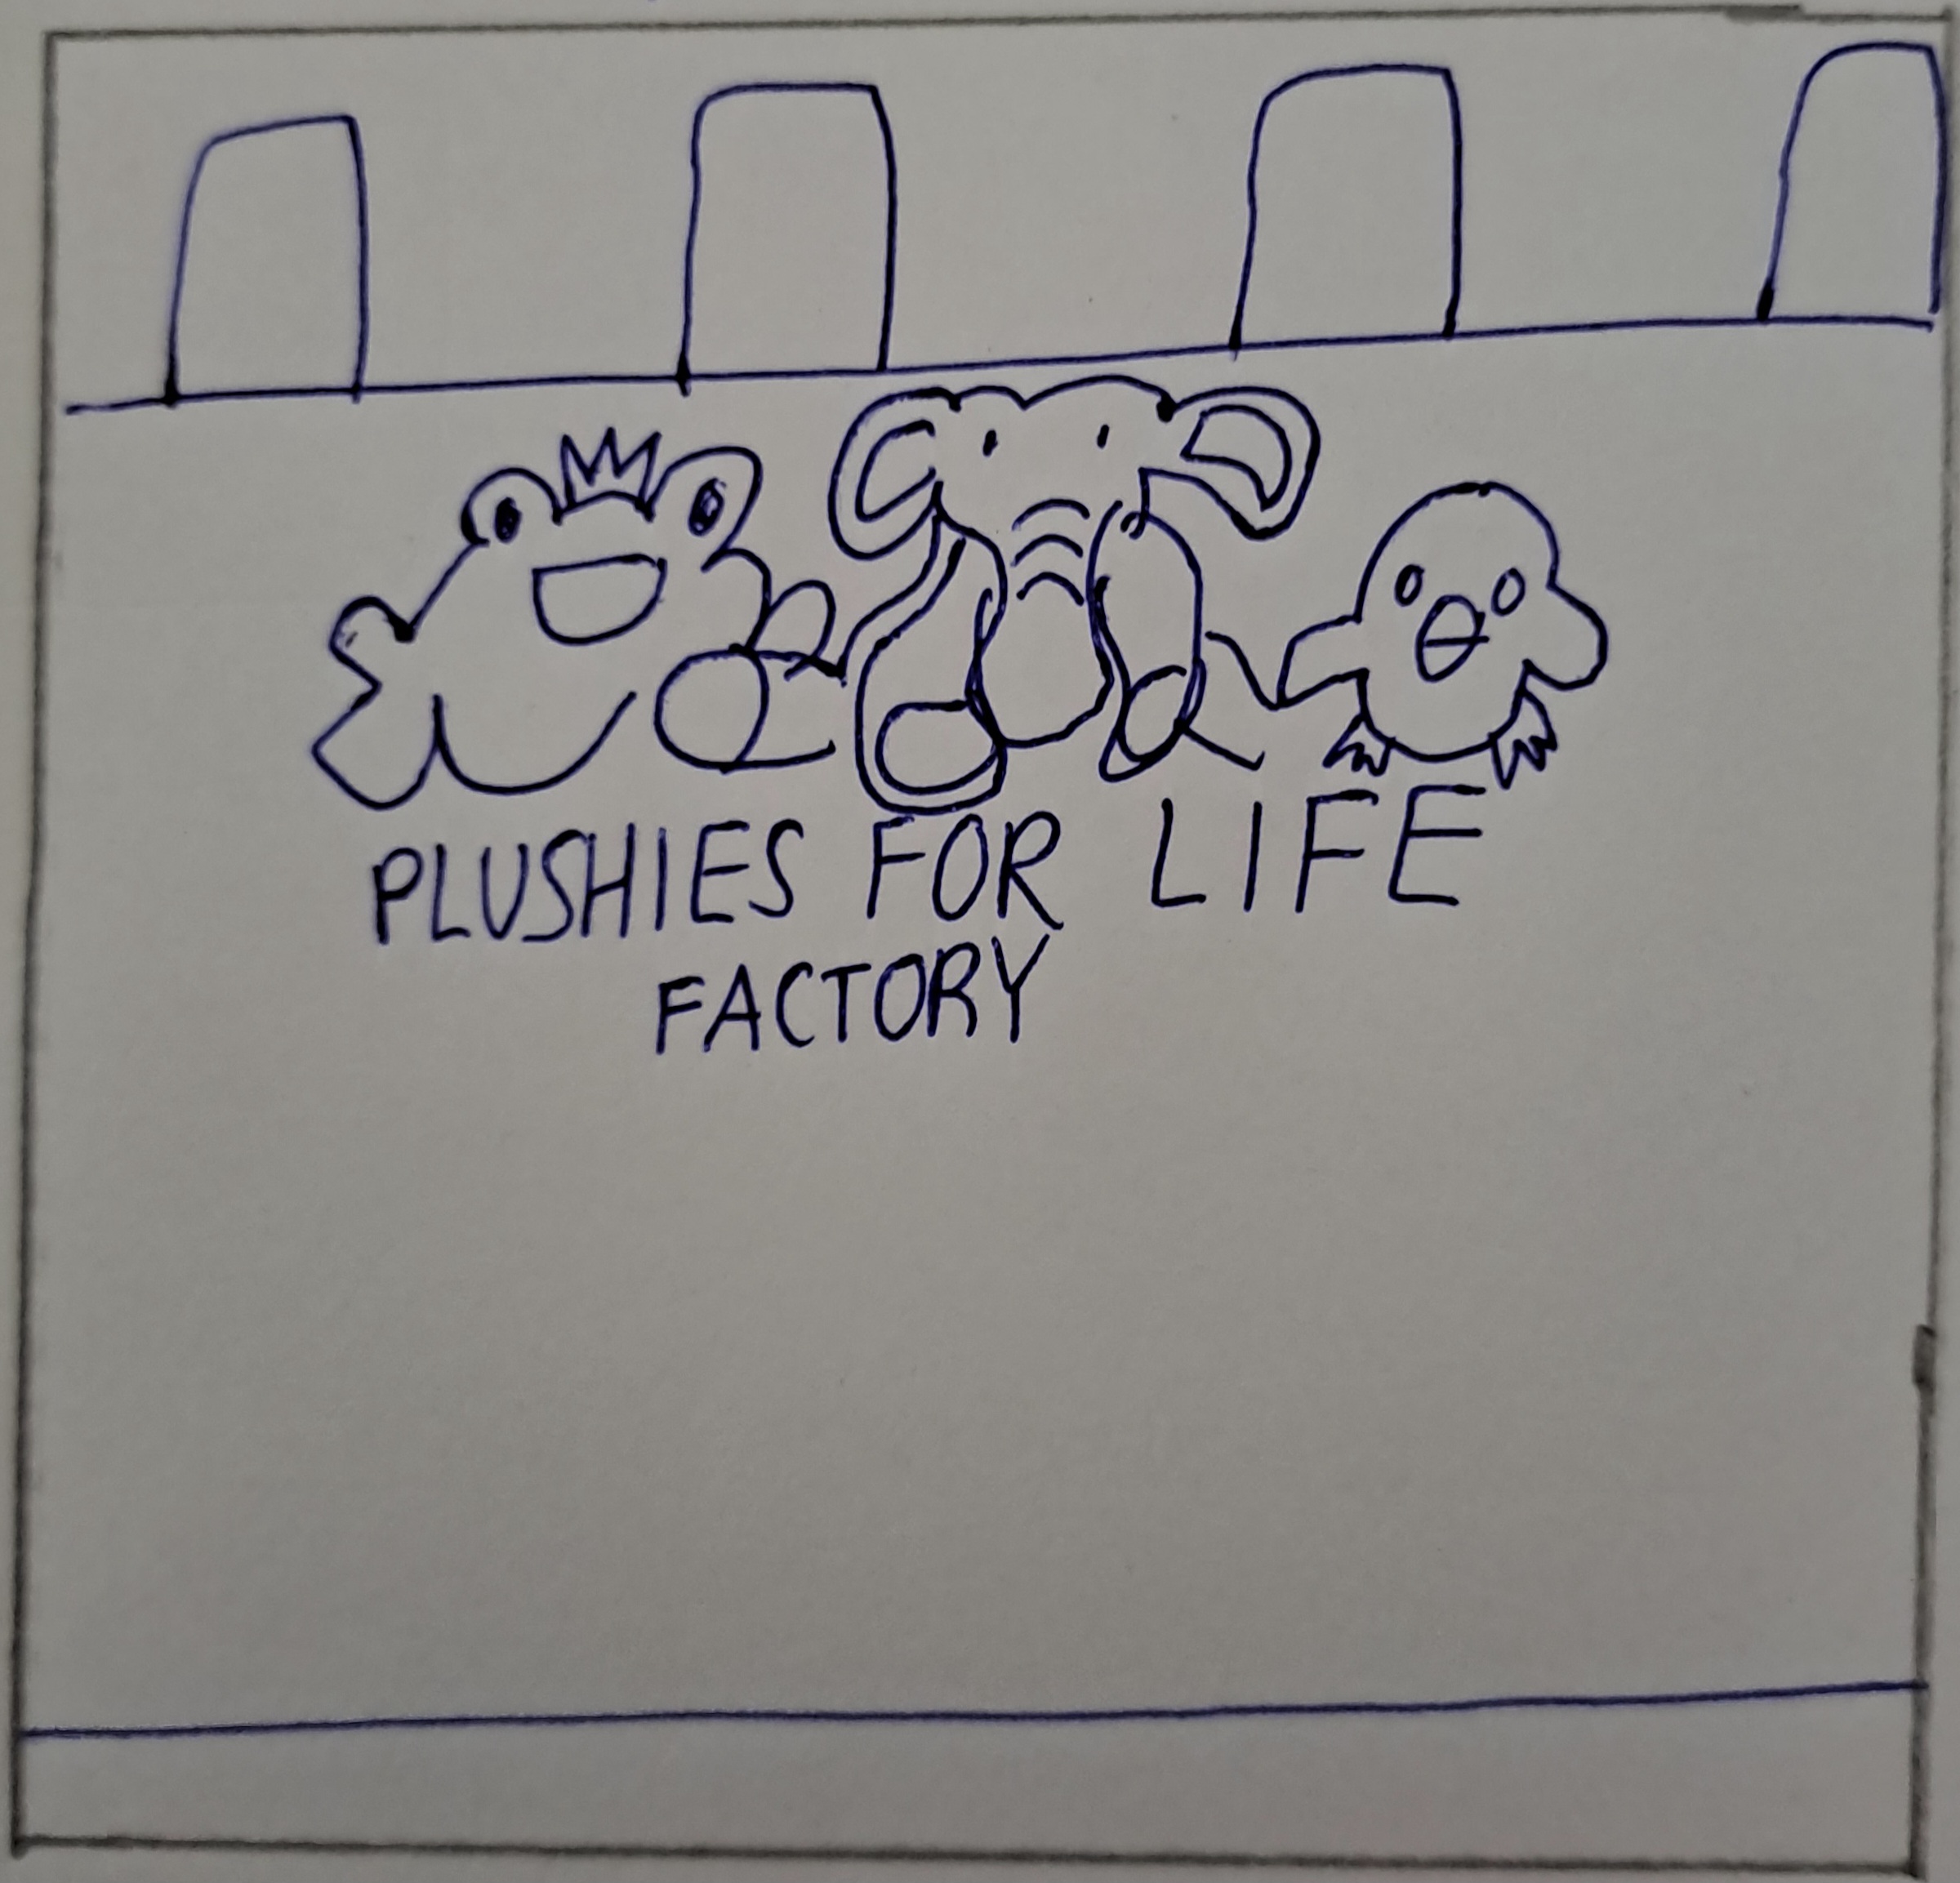 PLUSHIES FOR LIFE
FACTORY